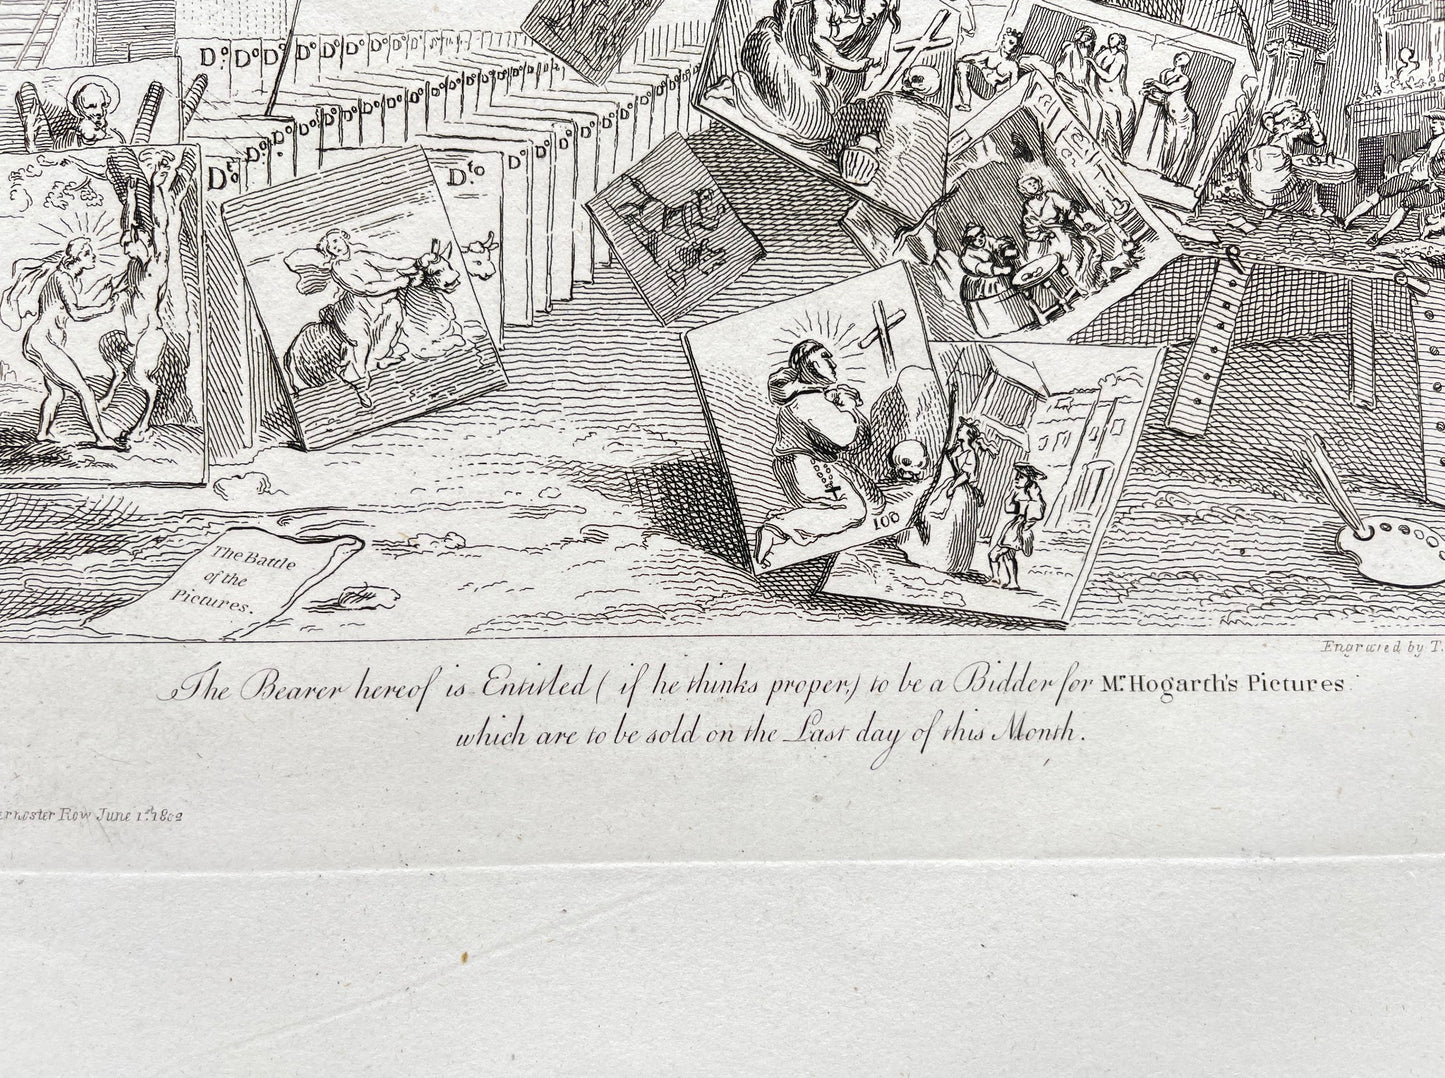 Do Do Do Do Do Do Do Do Do Do
Do Do Do Do Do Do Do Do Do Do Do Do
Dto Do Do Dto Do Do Do Do Do Do Do Do
100
The Battle
of the
Pictures.
Engraved by T.
The Bearer hereof is Entitled ( if he thinks proper,) to be a Bidder for Mr. Hogarth's Pictures
which are to be sold on the Last day of this Month.
ernoster Row June 1st. 1802